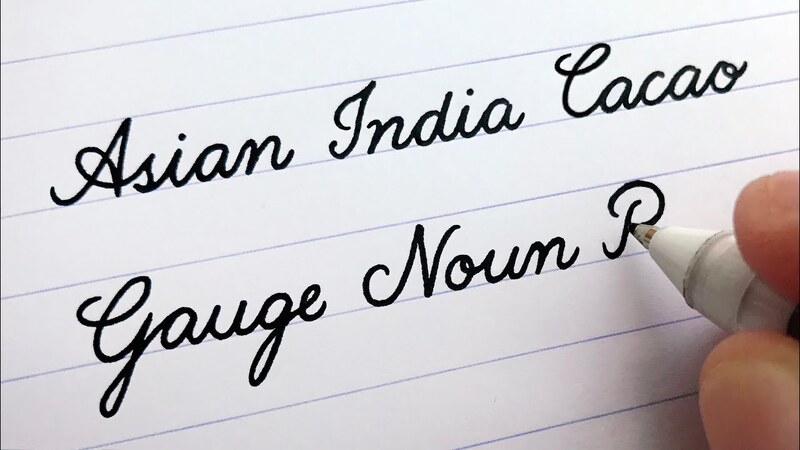 Asian India Cacao
Gauge Noun